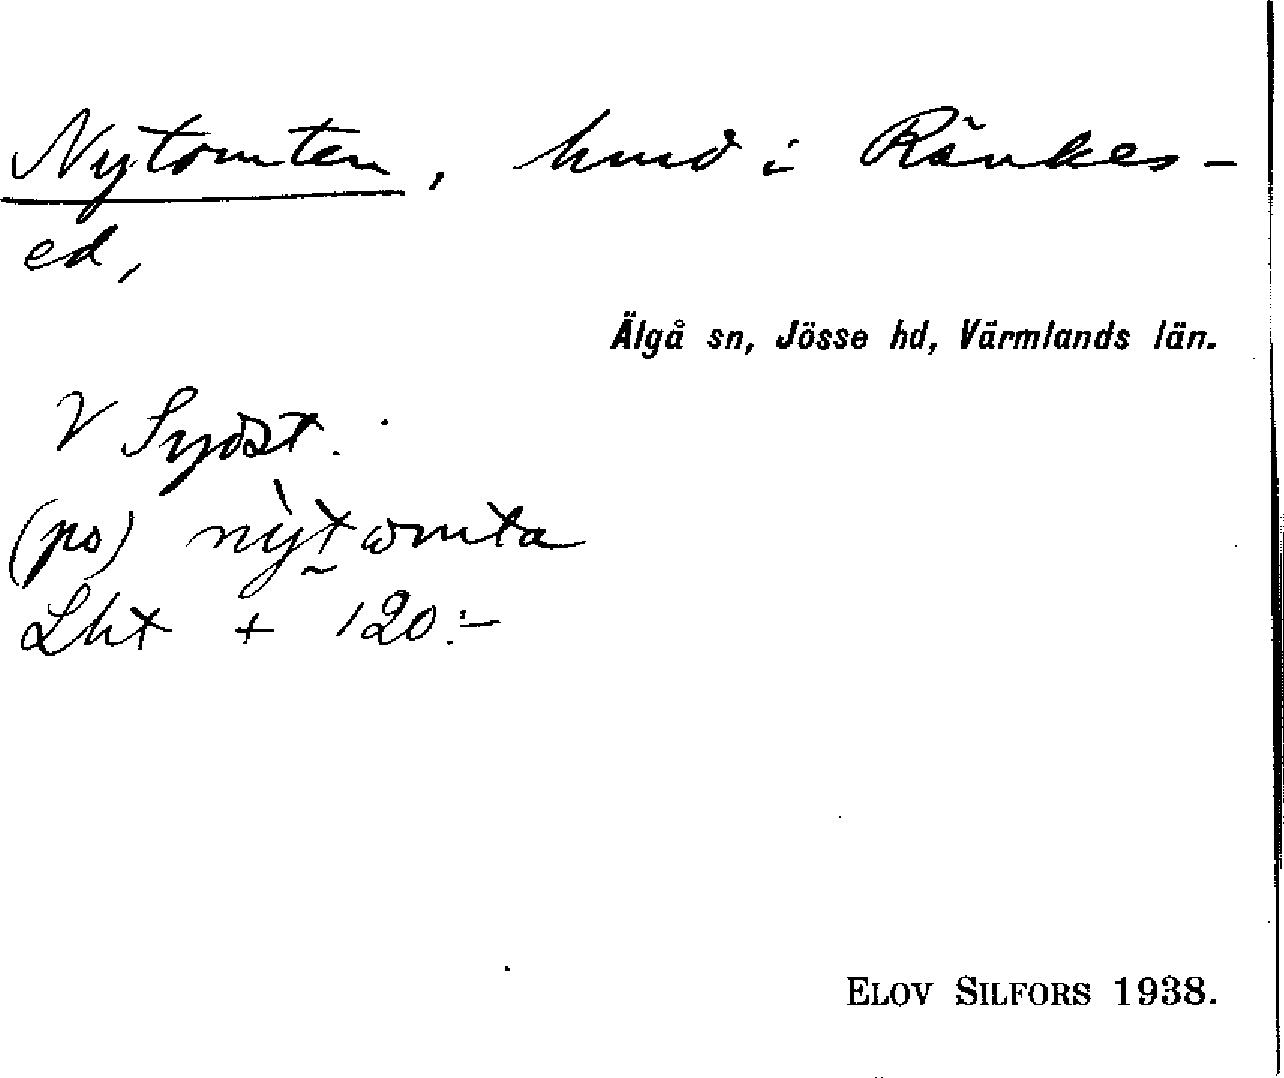 Nytomten, hmd i Ränkes-
ed,
Älgå sn, Jösse hd, Värmlands län.
V Sydst.
(ps) nỳtomta
Lht + 120:-
ELOV SILFORS 1938.